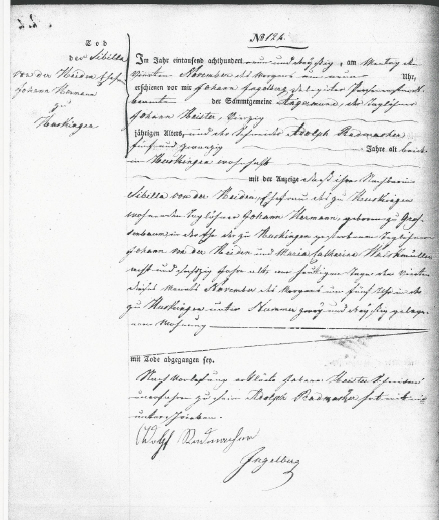 Tod
der Sibilla
von der Heiden Ehefrau
Johann Hermann
zu
Huckingen
No 124.
Im Jahr eintausend achthundert neun und dreyßig, am Montag den
Vierten November des Morgens um neun Uhr,
erschienen vor mir Johann Ingelberg
beamte der Sammtgemeine Angermund, der Taglöhner
Johann Heister, Vierzig
jährigen Alters, und der Schneider Adolph Radmacher
fünf und zwanzig Jahre alt beide
in Huckingen wohnhaft
mit der Anzeige daß ihre Nachbarin
Sibilla von der Heiden, Ehefrau des zu Huckingen
wohnenden Taglöhners Johann Hermann, geboren zu
der Ehe des zu Huckingen Taglöhner
Johann von der Heiden und Maria Catharina
acht und sechszig Jahre alt, am heutigen Tage den Vierten
dieses Monats November des Morgens um fünf Uhr in der
zu Huckingen unter Nummer zwey und dreyßig gelege-
nen Wohnung
mit Tode abgegangen sey.
Nach Vorlesung erklärte Johann Heister Schreibens
unerfahren zu sein Adolph Radmacher hat mit mir
unterschrieben.
Adolf Radmacher
Ingelberg